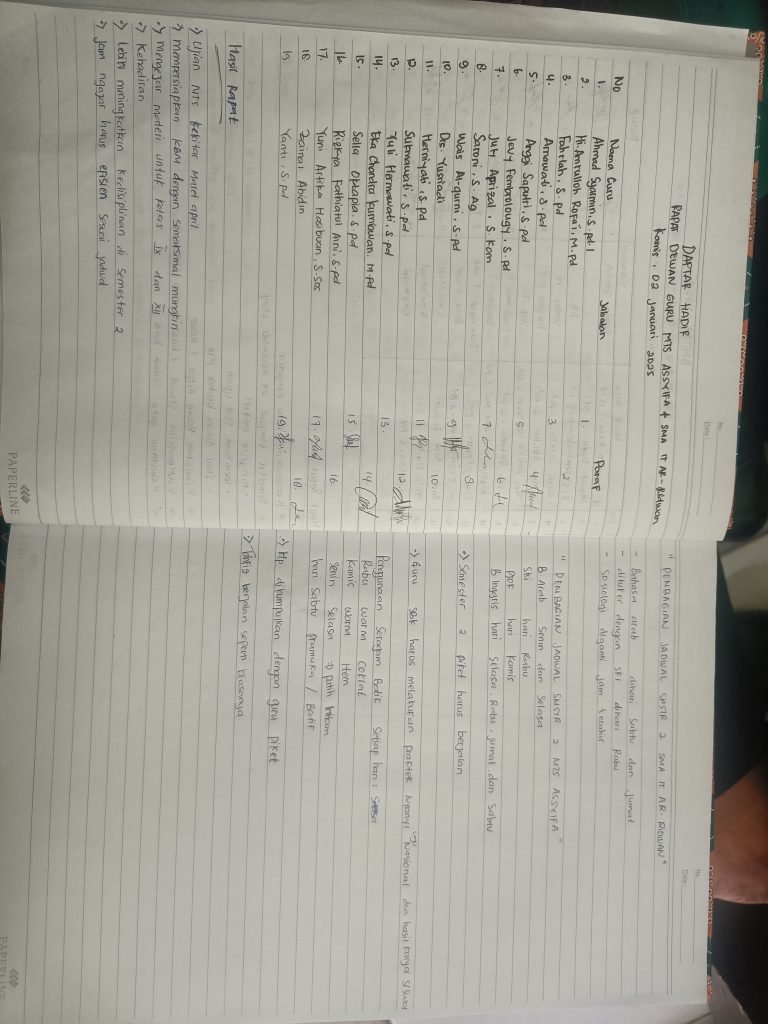 DAFTAR HADIR
RAPAT DEWAN GURU MTS ASSYIFA & SMA IT AR-RIDWAN
Kamis, 02 Januari 2025
No Nama Guru Jabatan Paraf
1. Ahmad Syarmin, S.pd.I 1.
2. Hi. Amrulloh Rofa'i, M.pd 2.
3. Fahriah, S.pd 3
4. Arnawati, S.pd 4
5. Anggi Saputri, S.pd 5
6. Jevy Fembrolougy, S.pd 6
7. Juli Aprizal, S.Kom 7
8. Saroni, S.Ag 8
9. Wais Al-qurni, S.pd 9
10. Drs. Yusriadi 10.
11. Herniyati, S.pd 11
12. Sukmawati, S.pd 12
13. Yuli Hermawati, S.pd 13.
14. Eka Chandra Kurniawan, M.pd 14
15. Sella Oktapia, S.pd 15
16. Rizkya Fathiatul Aini, S.pd 16
17. Yuni Artika Hasibuan, S.Sos 17.
18. Zainal Abidin 18
19 Yanti, S.pd 19.
Hasil Rapat
-> Ujian MTS sekitar Maret April
-> Mempersiapkan KBM dengan semaksimal mungkin
-> Mengejar materi untuk kelas IX dan XII
-> Kehadiran
-> Lebih meningkatkan Kedisiplinan di Semester 2
-> Jam ngajar harus efisien sesuai jadwal
PAPERLINE
No.
Date:
" PEMBAGIAN JADWAL SMSTR 2 SMA IT AR-RIDWAN "
- Bahasa arab dihari Sabtu dan Jumat
- ditukar dengan ski dihari Rabu
- Sosiologi diganti jam terakhir
" PEMBAGIAN JADWAL SMSTR 2 MTS ASSYIFA "
B Arab Senin dan Selasa
Ski hari Rabu
PJOK hari Kamis
B Inggris hari Selasa, Rabu, Jumat, dan Sabtu
-> Semester 2 piket harus berjalan
-> Guru SBK harus melakukan praktek Nyanyi lagu Nasional dan hasil karya siswa
Penggunaan Seragam Batik Setiap hari :
Rabu warna Coklat
Kamis warna Item
Senin Selasa -> putih hitam
hari Sabtu pramuka / Batik
-> Hp dikumpulkan dengan guru piket
-> Tahfiz berjalan seperti biasanya
No.
Date
PAPERLINE